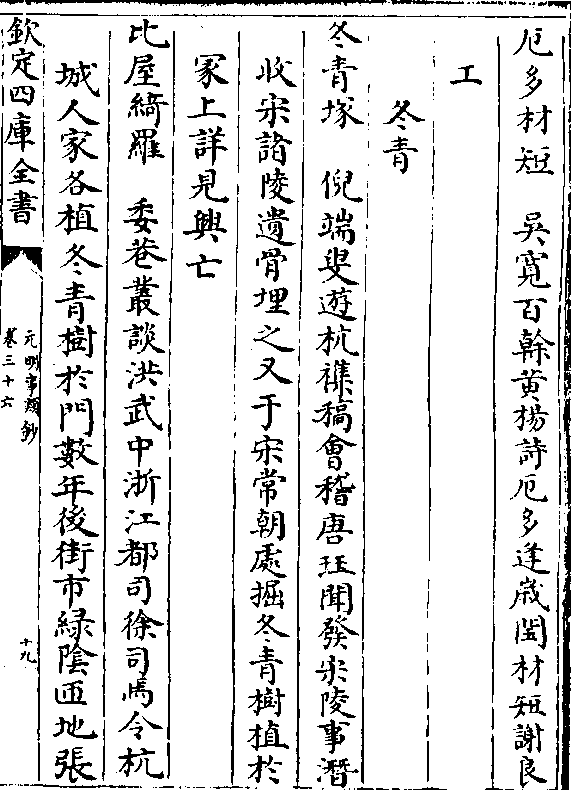 厄多材短　吳寛百幹黄楊詩厄多逢嵗閏材短謝良
工
冬青
冬青塚　倪端叟遊杭襍稿會稽唐珏聞發宋陵事潛
收宋諸陵遺骨埋之又于宋常朝處掘冬青樹植於
冢上詳見興亡
比屋綺羅　委巷叢談洪武中浙江都司徐司馬令杭
城人家各植冬青樹於門數年後街市緑陰匝地張
欽定四庫全書
元明事類鈔
卷三十六
十九